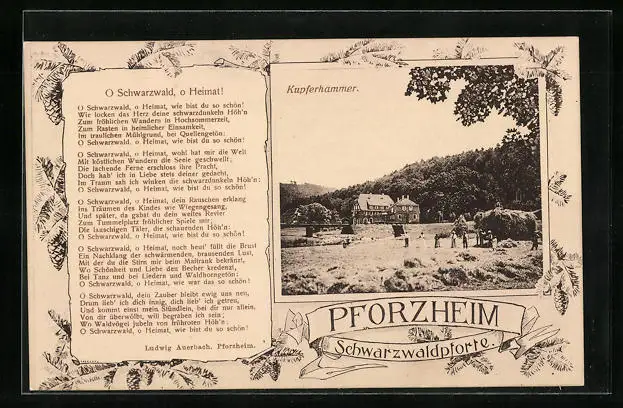 O Schwarzwald, o Heimat!
O Schwarzwald, o Heimat, wie bist du so schön!
Wie locken das Herz deine schwarzdunkeln Höh'n
Zum fröhlichen Wandern in Hochsommerzeit,
Zum Rasten in heimlicher Einsamkeit,
Im traulichen Mühlgrund, bei Quellengetön:
O Schwarzwald, o Heimat, wie bist du so schön!
O Schwarzwald, o Heimat, wohl hat mir die Welt
Mit köstlichen Wundern die Seele geschwellt;
Die lachende Ferne erschloss ihre Pracht,
Doch hab' ich in Liebe stets deiner gedacht,
Im Traum sah ich winken die schwarzdunkeln Höh'n:
O Schwarzwald, o Heimat, wie bist du so schön!
O Schwarzwald, o Heimat, dein Rauschen erklang
Ins Träumen des Kindes wie Wiegengesang,
Und später, da gabst du dein weites Revier
Zum Tummelplatz fröhlicher Spiele mir;
Die lauschigen Täler, die schauernden Höh'n:
O Schwarzwald, o Heimat, wie bist du so schön!
O Schwarzwald, o Heimat, noch heut' füllt die Brust
Ein Nachklang der schwärmenden, brausenden Lust,
Mit der du die Stirn mir beim Maitrank bekränzt,
Wo Schönheit und Liebe den Becher kredenzt,
Bei Tanz und bei Liedern und Waldhorngetön:
O Schwarzwald, o Heimat, wie war das so schön!
O Schwarzwald, dein Zauber bleibt ewig uns neu,
Drum lieb' ich dich innig, dich lieb' ich getreu,
Und kommt einst mein Stündlein, bei dir nur allein,
Von dir überwölbt, will begraben ich sein;
Wo Waldvögel jubeln von frührotem Höh'n:
O Schwarzwald, o Heimat, wie bist du so schön!
Ludwig Auerbach, Pforzheim.
Kupferhammer.
PFORZHEIM
Schwarzwaldpforte.